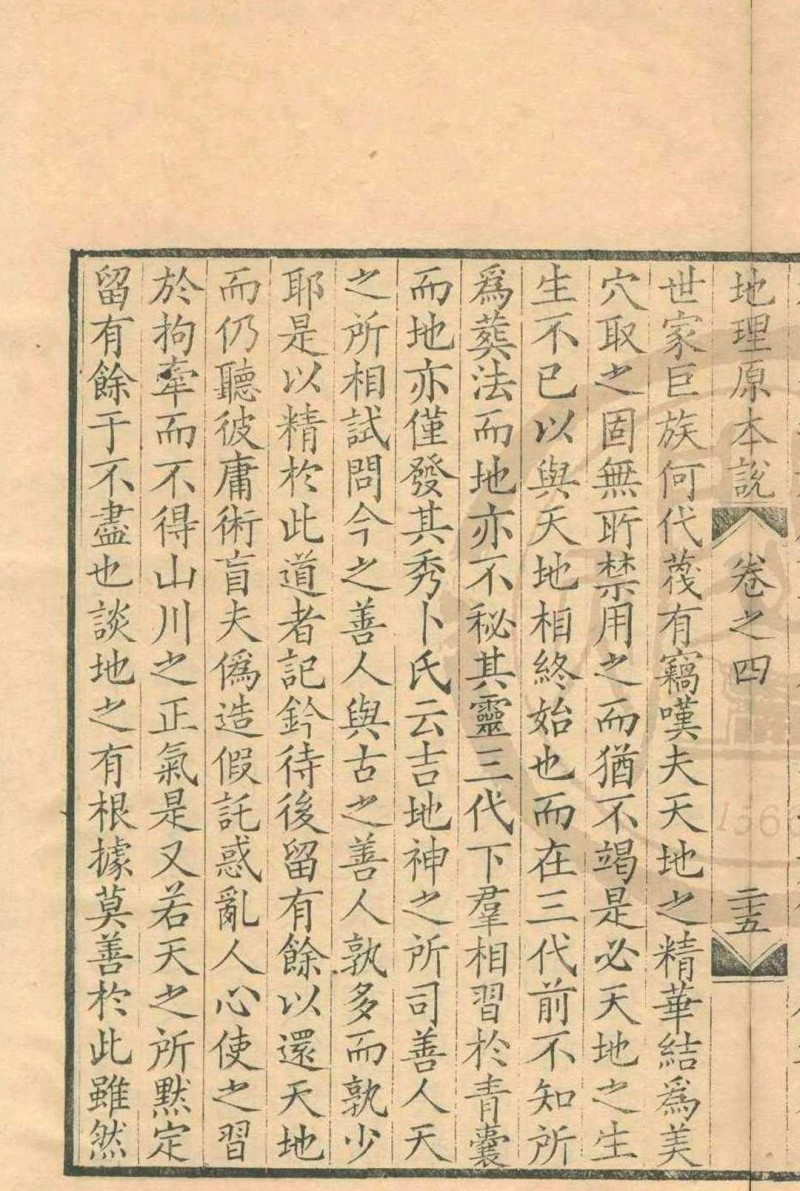 地理原本說 卷之四 二十五
世家巨族何代蔑有竊嘆夫天地之精華結爲美
穴取之固無所禁用之而猶不竭是必天地之生
生不已以與天地相終始也而在三代前不知所
爲葬法而地亦不秘其靈三代下羣相習於青囊
而地亦僅發其秀卜氏云吉地神之所司善人天
之所相試問今之善人與古之善人孰多而孰少
耶是以精於此道者記鈐待後留有餘以還天地
而仍聽彼庸術盲夫僞造假託惑亂人心使之習
於拘牽而不得山川之正氣是又若天之所默定
留有餘于不盡也談地之有根據莫善於此雖然